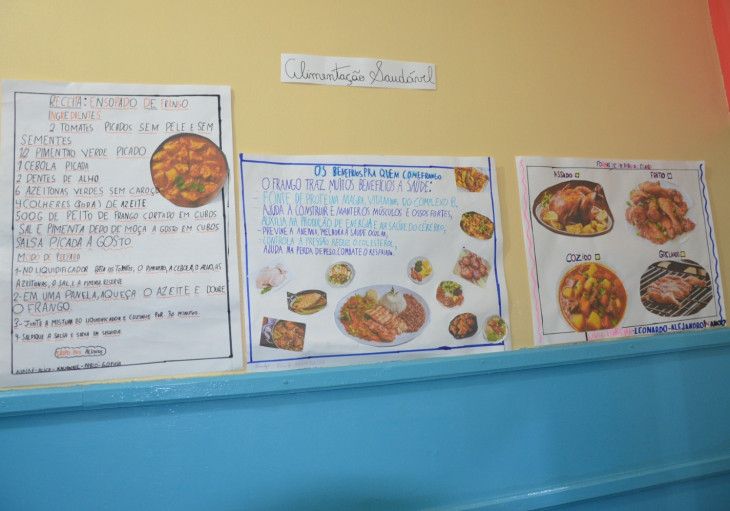 Alimentação Saudável
RECEITA: ENSOPADO DE FRANGO
INGREDIENTES
2 TOMATES PICADOS SEM PELE E SEM
SEMENTES
1/2 PIMENTÃO VERDE PICADO
1 CEBOLA PICADA
2 DENTES DE ALHO
6 AZEITONAS VERDES SEM CAROÇO
4 COLHERES (SOPA) DE AZEITE
500G DE PEITO DE FRANGO CORTADO EM CUBOS
SAL E PIMENTA DEDO DE MOÇA A GOSTO EM CUBOS
SALSA PICADA A GOSTO
MODO DE PREPARO
1- NO LIQUIDIFICADOR BATA OS TOMATES, O PIMENTÃO, A CEBOLA, O ALHO, AS
AZEITONAS, O SAL E A PIMENTA RESERVE
2- EM UMA PANELA, AQUEÇA O AZEITE E DOURE
O FRANGO
3- JUNTE A MISTURA DO LIQUIDIFICADOR E COZINHE POR 30 MINUTOS
4- SALPIQUE A SALSA E SIRVA EM SEGUIDA
OS BENEFICIOS PRA QUEM COME FRANGO
O FRANGO TRAZ MUITOS BENEFICIOS A SAÚDE:
- FONTE DE PROTEINA MAGRA, VITAMINA DO COMPLEXO B,
AJUDA A CONSTRUIR E MANTER OS MÚSCULOS E OSSOS FORTES,
AUXILIA NA PRODUÇÃO DE ENERGIA E NA SAÚDE DO CÉREBRO,
- PREVINE A ANEMIA, MELHORA A SAÚDE OCULAR,
- CONTROLA A PRESSÃO REDUZ O COLESTEROL,
AJUDA NA PERDA DE PESO, COMBATE O RESFRIADO.
ASSADO
FRITO
COZIDO
GRELHADO
LEONARDO - ALEJANDRO